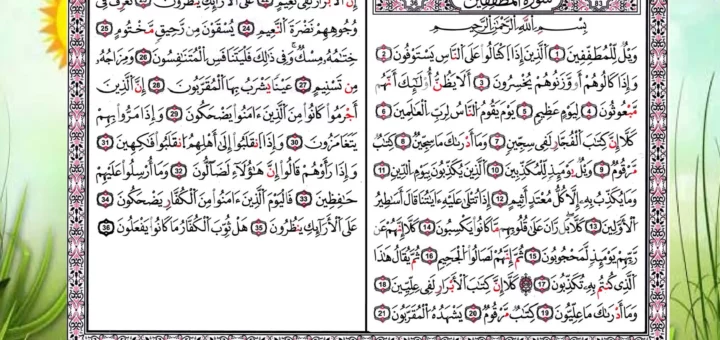 سورة المطففين
بِسْمِ اللَّهِ الرَّحْمَنِ الرَّحِيمِ
وَيْلٌ لِلْمُطَفِّفِينَ 1 الَّذِينَ إِذَا اكْتَالُوا عَلَى النَّاسِ يَسْتَوْفُونَ 2
وَإِذَا كَالُوهُمْ أَو وَّزَنُوهُمْ يُخْسِرُونَ 3 أَلَا يَظُنُّ أُولَٰئِكَ أَنَّهُم
مَّبْعُوثُونَ 4 لِيَوْمٍ عَظِيمٍ 5 يَوْمَ يَقُومُ النَّاسُ لِرَبِّ الْعَالَمِينَ 6
كَلَّا إِنَّ كِتَٰبَ الْفُجَّارِ لَفِي سِجِّينٍ 7 وَمَا أَدْرَىٰكَ مَا سِجِّينٌ 8 كِتَٰبٌ
مَّرْقُومٌ 9 وَيْلٌ يَوْمَئِذٍ لِّلْمُكَذِّبِينَ 10 الَّذِينَ يُكَذِّبُونَ بِيَوْمِ الدِّينِ 11
وَمَا يُكَذِّبُ بِهِ إِلَّا كُلُّ مُعْتَدٍ أَثِيمٍ 12 إِذَا تُتْلَىٰ عَلَيْهِ ءَايَٰتُنَا قَالَ أَسَٰطِيرُ
الْأَوَّلِينَ 13 كَلَّا بَلْ رَانَ عَلَىٰ قُلُوبِهِم مَّا كَانُوا يَكْسِبُونَ 14 كَلَّا إِنَّهُمْ عَن
رَّبِّهِمْ يَوْمَئِذٍ لَّمَحْجُوبُونَ 15 ثُمَّ إِنَّهُمْ لَصَالُوا الْجَحِيمِ 16 ثُمَّ يُقَالُ هَٰذَا
الَّذِي كُنتُم بِهِ تُكَذِّبُونَ 17 كَلَّا إِنَّ كِتَٰبَ الْأَبْرَارِ لَفِي عِلِّيِّينَ 18
وَمَا أَدْرَىٰكَ مَا عِلِّيُّونَ 19 كِتَٰبٌ مَّرْقُومٌ 20 يَشْهَدُهُ الْمُقَرَّبُونَ 21
إِنَّ الْأَبْرَارَ لَفِي نَعِيمٍ 22 عَلَى الْأَرَائِكِ يَنظُرُونَ 23 تَعْرِفُ فِي
وُجُوهِهِمْ نَضْرَةَ النَّعِيمِ 24 يُسْقَوْنَ مِن رَّحِيقٍ مَّخْتُومٍ 25
خِتَٰمُهُ مِسْكٌ وَفِي ذَٰلِكَ فَلْيَتَنَافَسِ الْمُتَنَٰفِسُونَ 26 وَمِزَاجُهُ
مِن تَسْنِيمٍ 27 عَيْنًا يَشْرَبُ بِهَا الْمُقَرَّبُونَ 28 إِنَّ الَّذِينَ
أَجْرَمُوا كَانُوا مِنَ الَّذِينَ ءَامَنُوا يَضْحَكُونَ 29 وَإِذَا مَرُّوا بِهِمْ
يَتَغَامَزُونَ 30 وَإِذَا انقَلَبُوا إِلَىٰ أَهْلِهِمُ انقَلَبُوا فَكِهِينَ 31
وَإِذَا رَأَوْهُمْ قَالُوا إِنَّ هَٰؤُلَاءِ لَضَالُّونَ 32 وَمَا أُرْسِلُوا عَلَيْهِمْ
حَٰفِظِينَ 33 فَالْيَوْمَ الَّذِينَ ءَامَنُوا مِنَ الْكُفَّارِ يَضْحَكُونَ 34
عَلَى الْأَرَائِكِ يَنظُرُونَ 35 هَلْ ثُوِّبَ الْكُفَّارُ مَا كَانُوا يَفْعَلُونَ 36